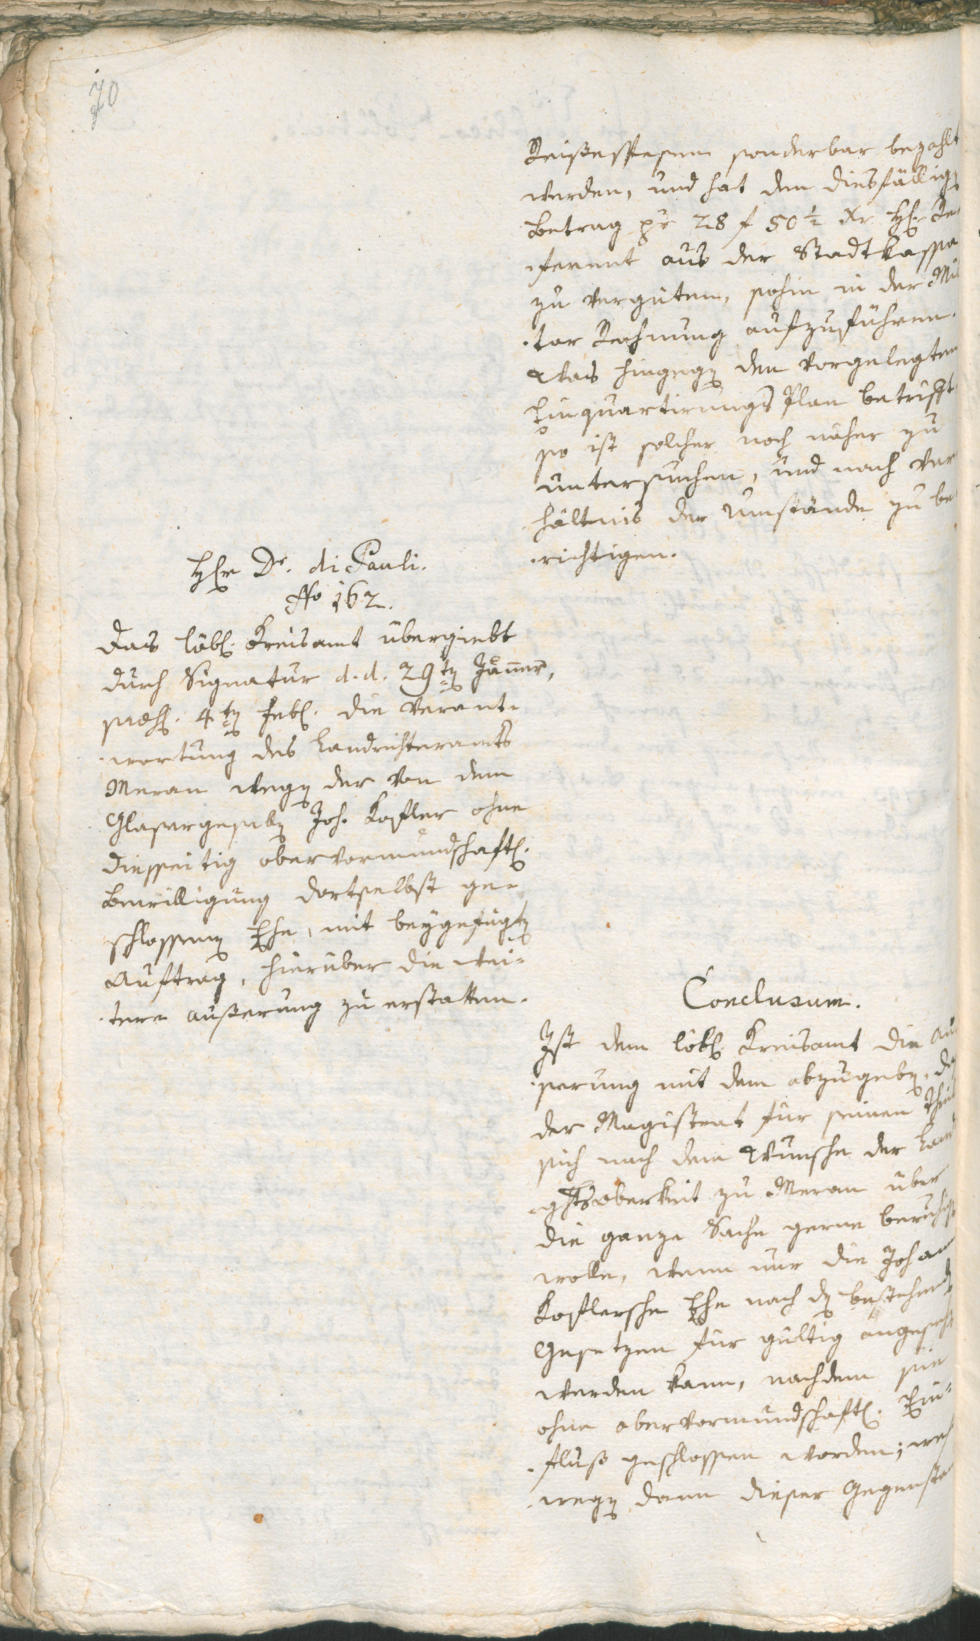 70
Reisespesen sonderbar bezahlt
werden, und hat den diesfällig
Betrag pr 28 f 50½ xr H: Re-
ferent aus der Stadtkassa
zu vergüten, sohin in der Mili
tar Rechnung aufzuführen.
Was hingegen den vorgelegten
Einquartirungs Plan betrifft
so ist solcher noch näher zu
untersuchen, und nach Ver
hältnis der Umstände zu be
richtigen.
Herr Dr. di Pauli.
No 162.
Das löbl: Kreisamt übergiebt
durch Signatur d.d. 29ten Jänner,
4ten Febr: die Verant-
wortung des Landrichteramts
Meran wegen der von dem
Glasergesellen Joh. Kofler ohne
diesseitig obervormundschaftl:
Bewilligung dortselbst ge-
schlossenen Ehe, mit beygefügten
Auftrag, hierüber die wei-
tere äußerung zu erstatten.
Conclusum.
Ist dem löbl: Kreisamt die Äu
ßerung mit dem abzugeben, daß
der Magistrat für seinen Theil
sich nach dem Wunsche der Land
gchtsoberkeit zu Meran über
die ganze Sache gerne beruhigen
wolle, wenn nur die Johann
Koflersche Ehe nach den bestehenden
Gesetzen für gültig angesehen
werden kann, nachdem sie
ohne obervormundschaftl: Ein-
fluß geschlossen worden; wes
wegen dann dieser Gegensta